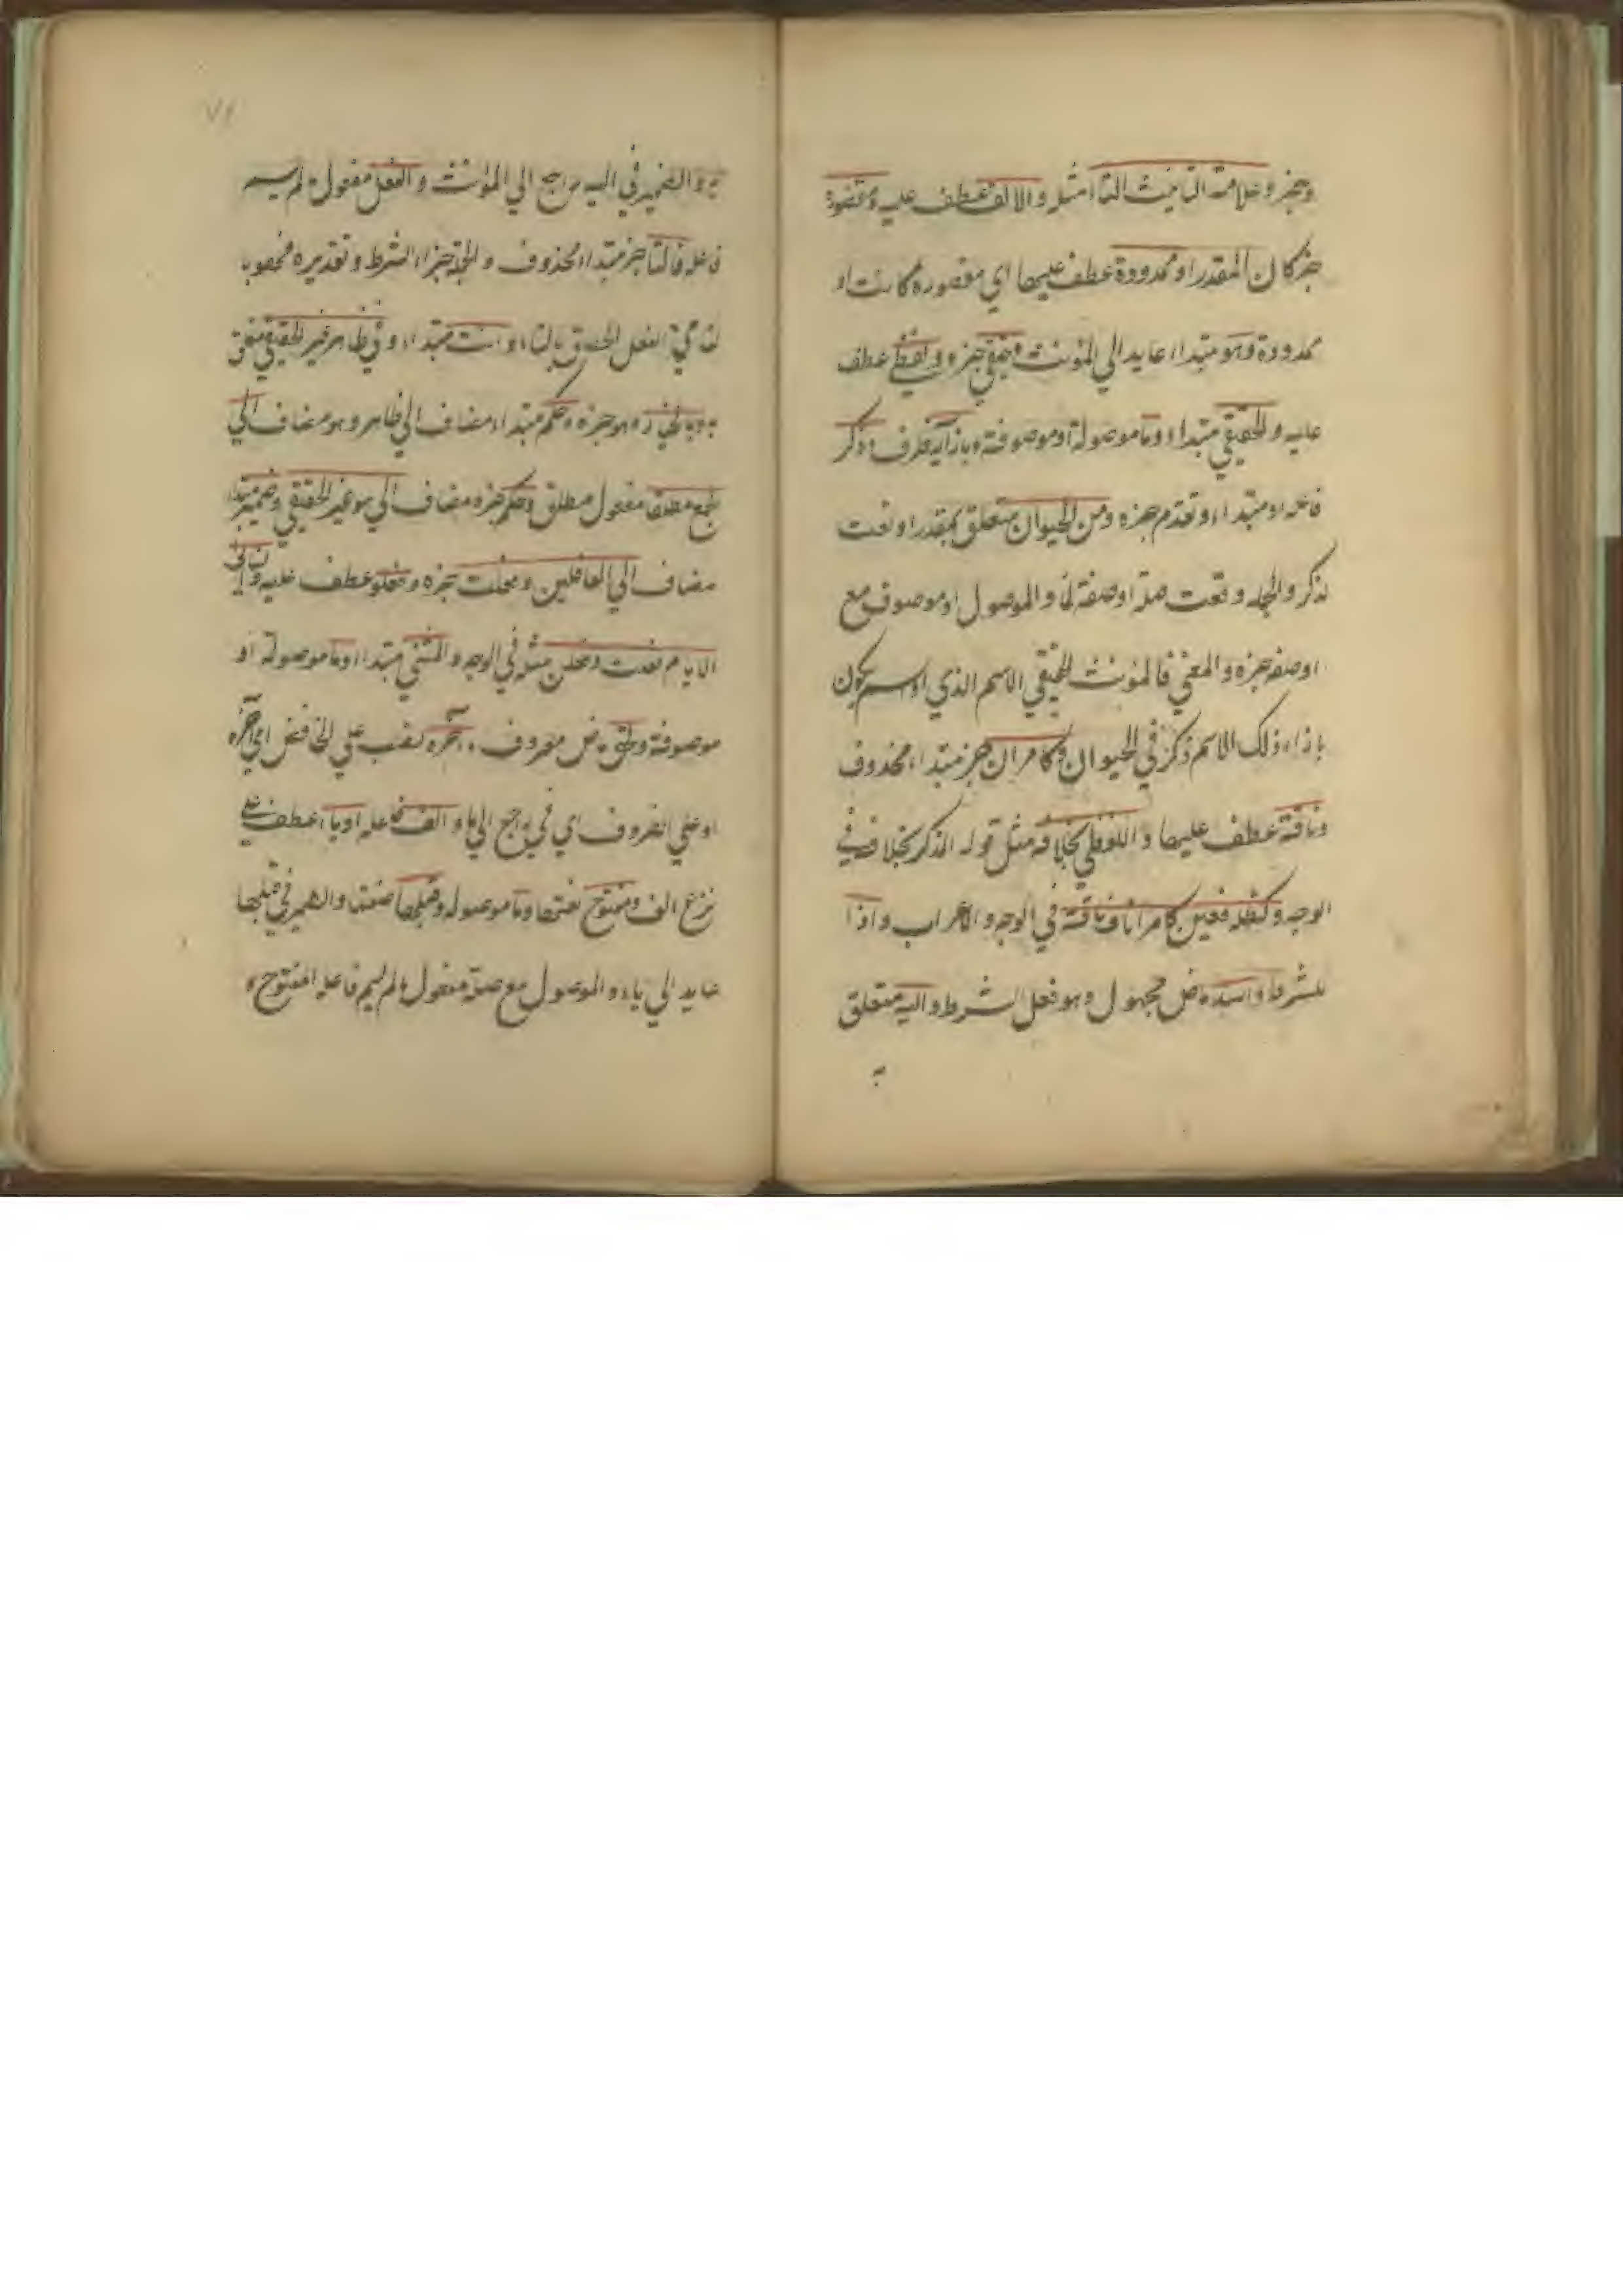 وخبر وعلامة التانيث التاء مثل والالف عطف عليه ومقصورة
خبر كان المقدر او ممدودة عطف عليها اي مقصورة كانت او
ممدودة وهو مبتداء عايد الي المؤنث وحقيقي خبره ولفظي عطف
عليه والحقيقي مبتداء وما موصولة او موصوفة وبازائه ظرف وذكر
فاعله او مبتداء وتقدم خبره ومن الحيوان متعلق بمقدر او نعت
لذكر والجملة وقعت صلة او صفة لما والموصول او موصوف مع
او صفة خبره والمعني فالمؤنث الحقيقي الاسم الذي او اسم يكون
بازاء ذلك الاسم ذكر في الحيوان وكامراة خبر مبتداء محذوف
وناقة عطف عليها واللفظي بخلافه مثل قوله المذكر بخلافه في
الوجه وكظلمة وعين كامراة وناقة في الوجه والاعراب واذا
للشرط واسند ماض مجهول وهو فعل الشرط واليه متعلق
به
به والضمير في اليه راجع الي المؤنث والفعل مفعول ما لم يسم
فاعله فالتاء خبر مبتداء محذوف والجملة جزاء الشرط وتقديره
الفعل بالتاء وانت مبتداء وفي ظاهر غير الحقيقي متعلق
به وبالخيار وهو خبره وحكم مبتداء مضاف الي ظاهر وهو مضاف الي
الجمع مطلقا مفعول مطلق وحكم خبره مضاف الي هو غير الحقيقي وضمير مبتداء
مضاف الي العاقلين وفعلت خبره وفعلوا عطف عليه والنساء
الايام فعلت وفعلن مثله في الوجه والمثني مبتداء وما موصولة او
موصوفة ولحق ماض معروف واخره نصب علي الخافض اي في اخره
او علي الظروف اي في راجع الي ما والف فاعله او ياء عطف علي
نزع الف ومفتوح نعتها وما موصولة وقبلها صفتها والضمير في قبلها
عايد الي ياء والموصول مع صلته مفعول ما لم يسم فاعله لمفتوح و